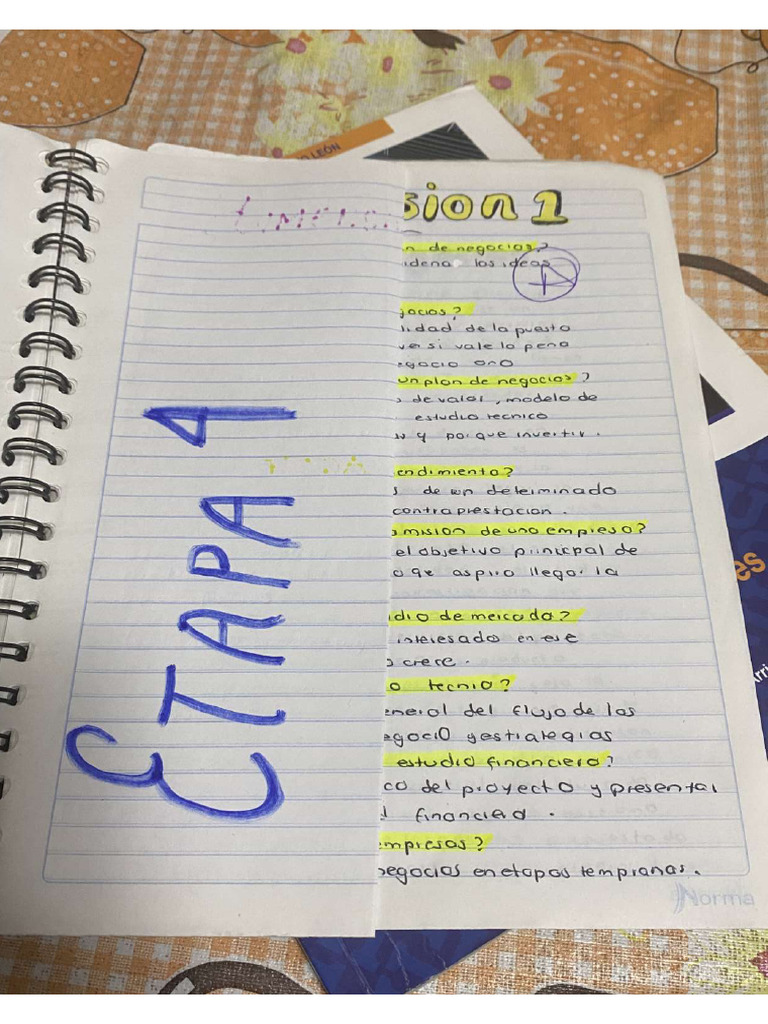 ETAPA 1
sion 1
n de negocios?
idena los ideas
gocios?
lidad de la puesto
ve si vale la pena
egocio ono
un plan de negocios?
s de valor, modelo de
estudio tecnico
y porque invertir.
endimiento?
s de un determinado
contraprestacion.
mision de una empresa?
el objetivo prinicpal de
o qe aspiro llegar la
dio de mercado?
interesado en ese
crece.
o tecnio?
eneral del flujo de las
egocio y estrategias
estudio financiero?
co del proyecto y presental
financiera.
mpresas?
negocios en etapas tempranas.
Norma
LEÓN
es